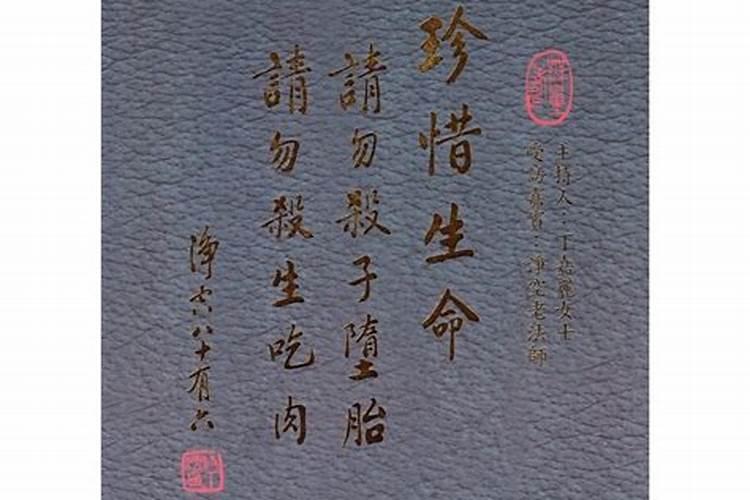 主持人：丁嘉麗女士
受訪嘉賓：淨空老法師
珍惜生命
請勿殺子墮胎
請勿殺生吃肉
淨空八十有六